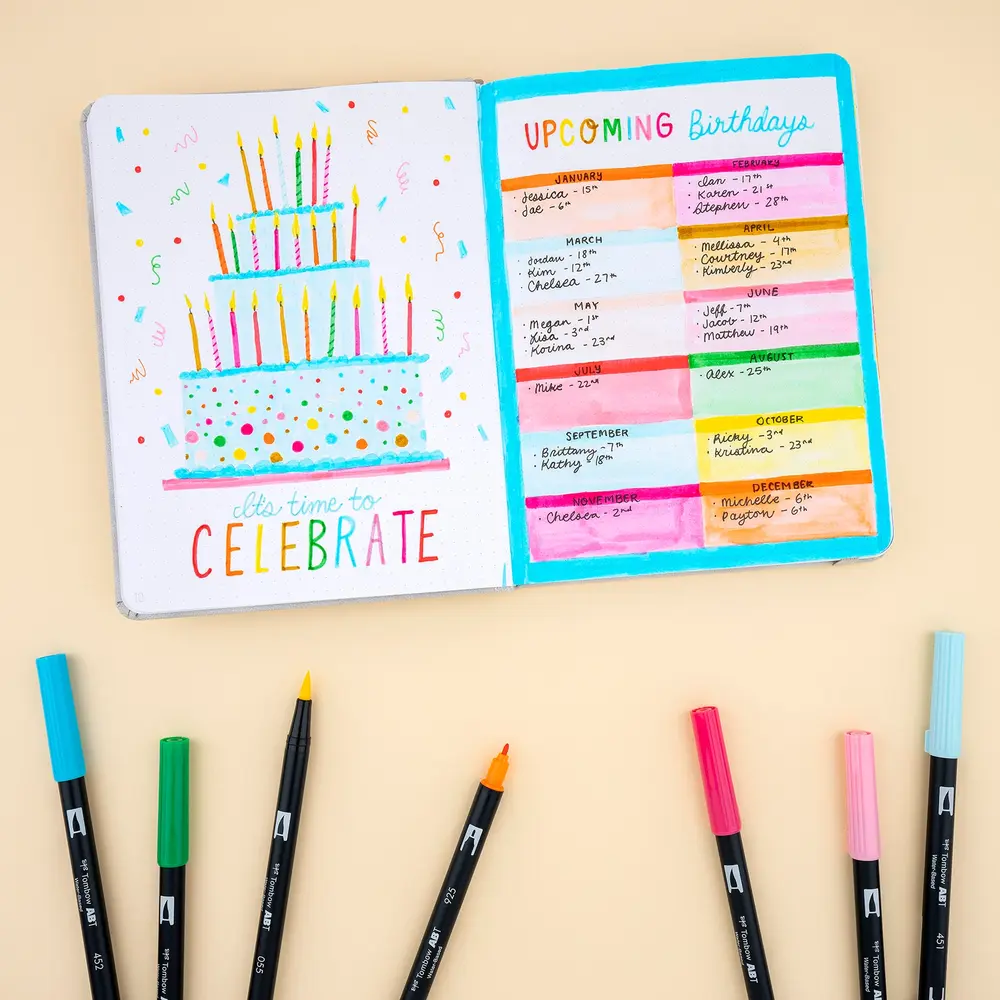 UPCOMING Birthdays
JANUARY
· Jessica - 15th
· Jae - 6th
FEBRUARY
· Ian - 17th
· Karen - 21st
· Stephen - 28th
MARCH
· Jordan - 18th
· Kim - 12th
· Chelsea - 27th
APRIL
· Mellissa - 4th
· Courtney - 17th
· Kimberly - 23nd
MAY
· Megan - 1st
· Lisa - 3nd
· Korina - 23nd
JUNE
· Jeff - 7th
· Jacob - 12th
· Matthew - 19th
JULY
· Mike - 22nd
AUGUST
· Alex - 25th
SEPTEMBER
· Brittany - 7th
· Kathy - 18th
OCTOBER
· Ricky - 3nd
· Kristina - 23nd
NOVEMBER
· Chelsea - 2nd
DECEMBER
· Michelle - 6th
· Payton - 6th
It's time to
CELEBRATE
Tombow ABT
Water-Based
452
Tombow ABT
Water-Based
Tombow ABT
055
925
Tombow ABT
Water-Based
Tombow ABT
Water-Based
Tombow ABT
Water-Based
Tombow ABT
Water-Based
451